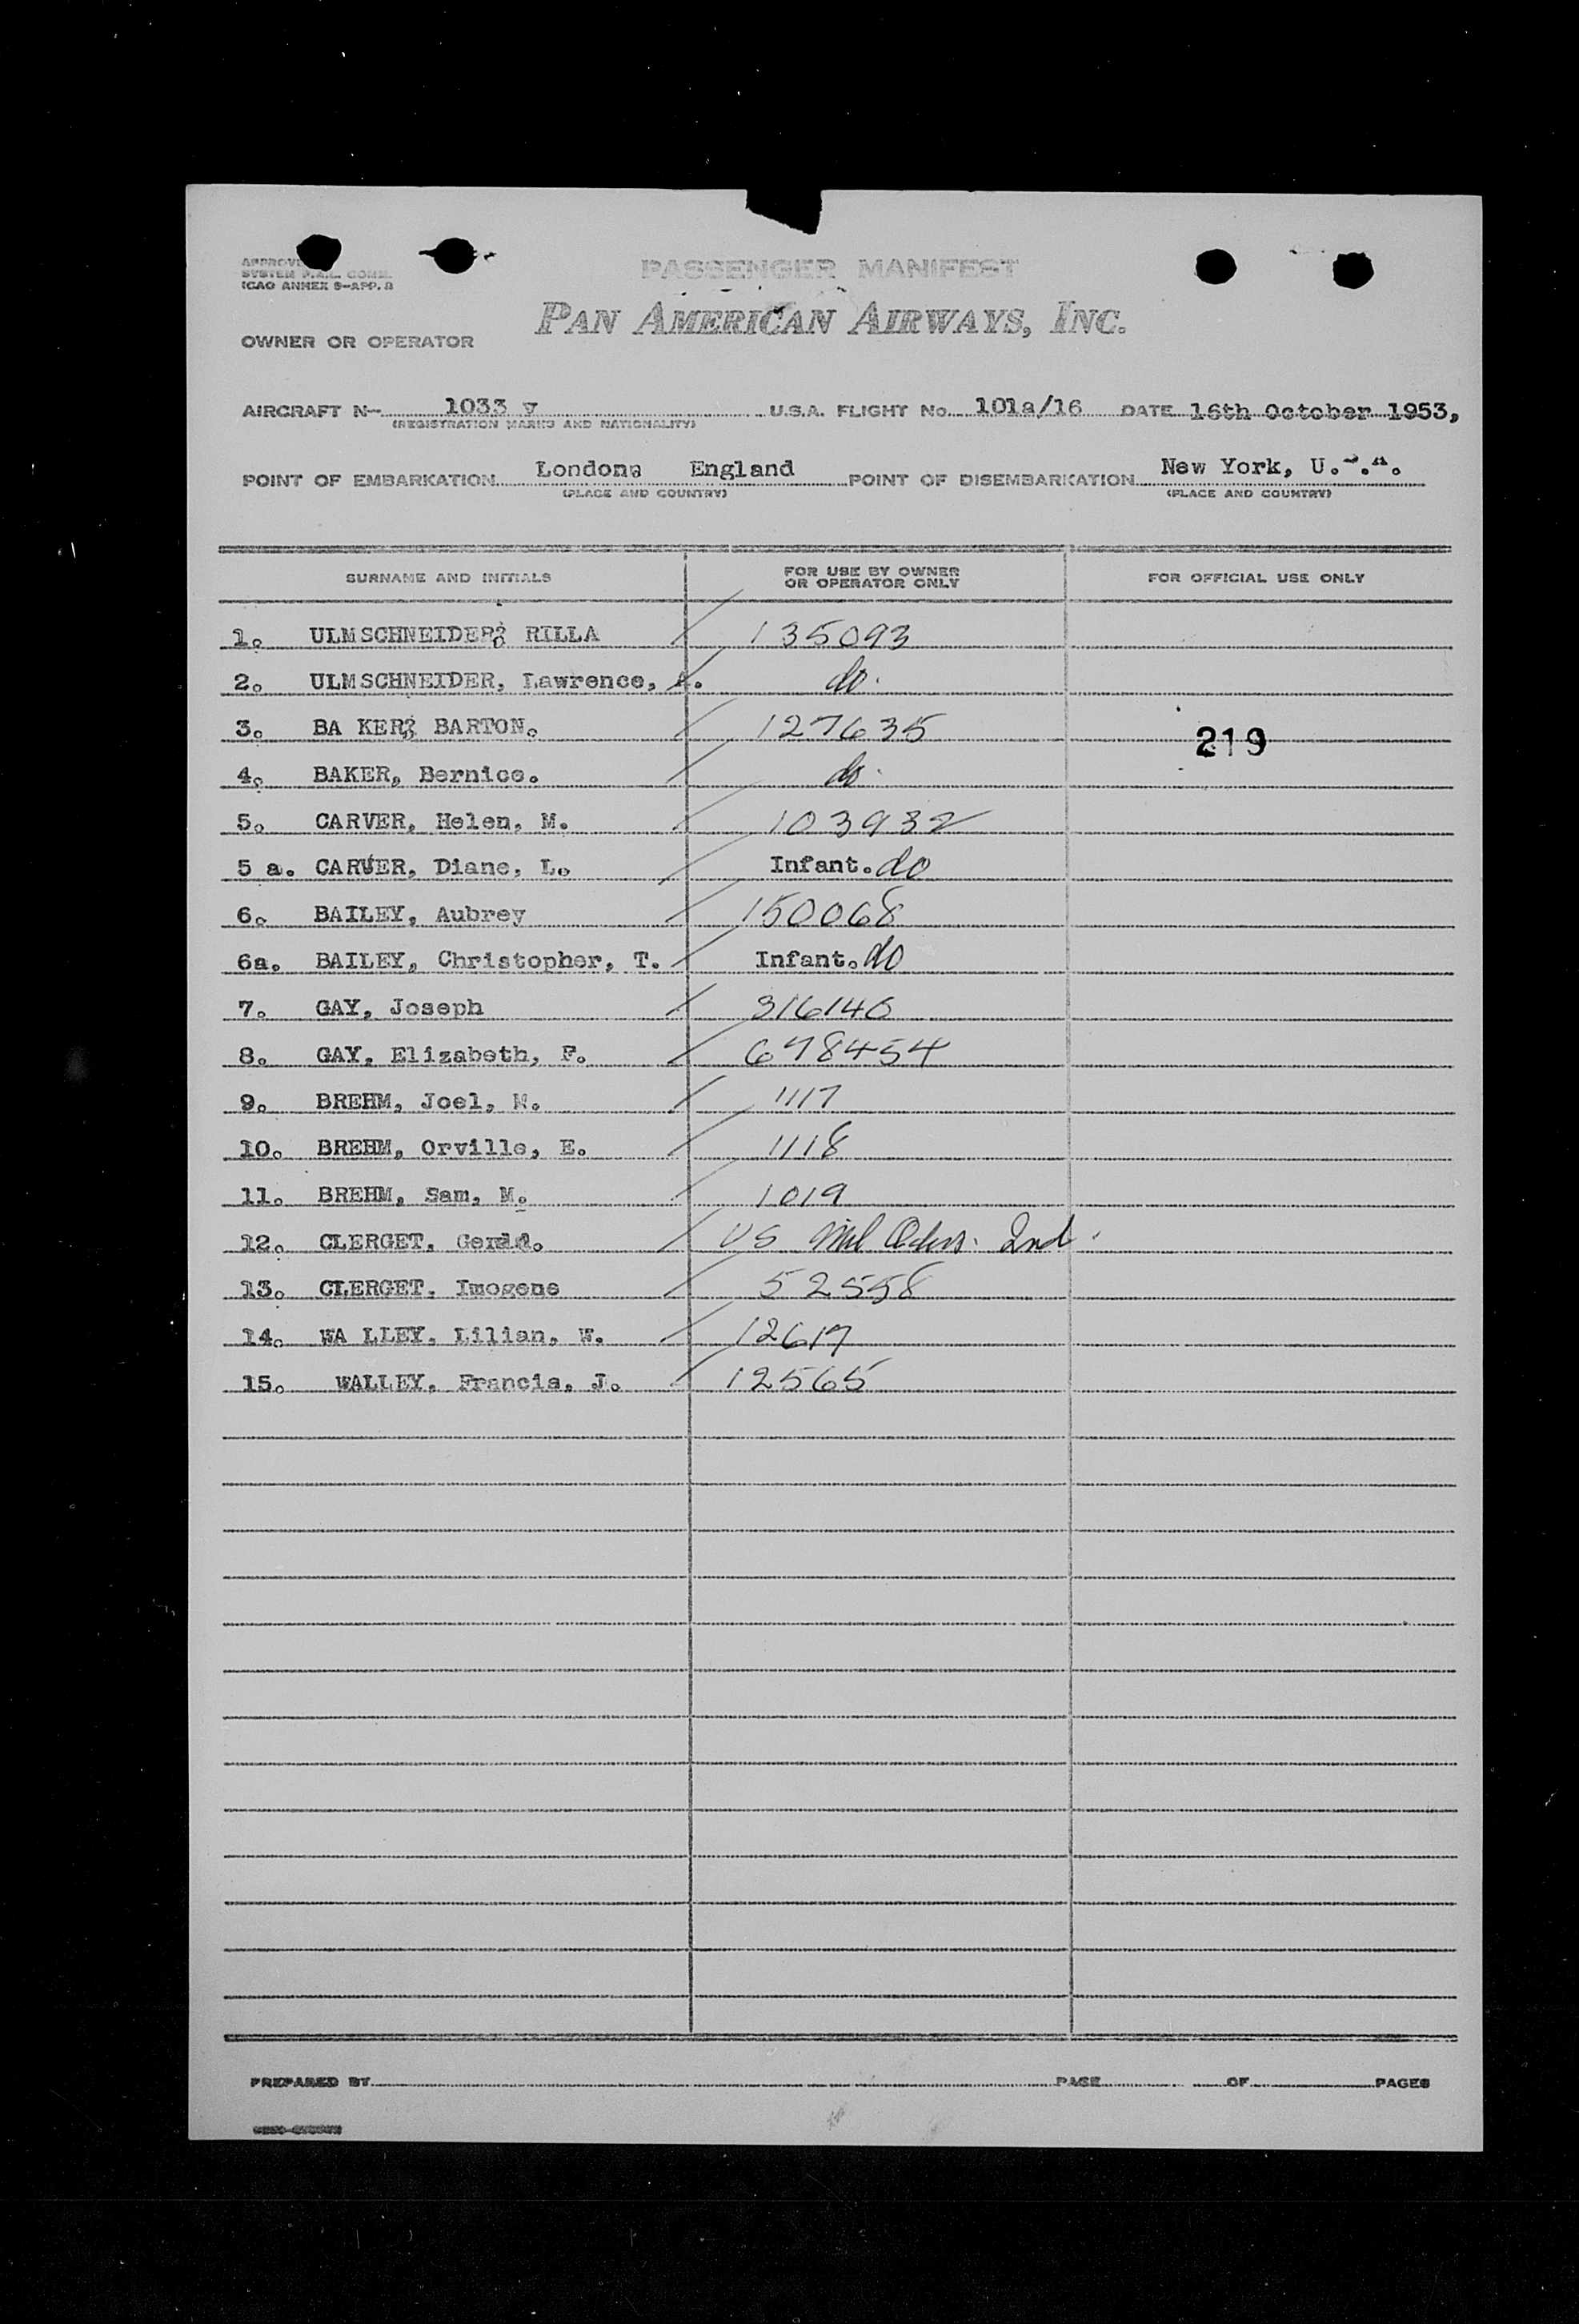 PASSENGER MANIFEST
SYSTEM P.A.L. COMM.
ICAO ANNEX 9-APP. B
PAN AMERICAN AIRWAYS, INC.
OWNER OR OPERATOR
AIRCRAFT N- 1033 v U.S.A. FLIGHT No. 101a/16 DATE 16th October 1953,
(REGISTRATION MARKS AND NATIONALITY)
POINT OF EMBARKATION London, England POINT OF DISEMBARKATION New York, U.S.A.
(PLACE AND COUNTRY) (PLACE AND COUNTRY)
SURNAME AND INITIALS FOR USE BY OWNER OR OPERATOR ONLY FOR OFFICIAL USE ONLY
1. ULMSCHNEIDER, RILLA / 135093
2. ULMSCHNEIDER, Lawrence, A. / do.
3. BA KER, BARTON. / 127635
219
4. BAKER, Bernice. / do.
5. CARVER, Helen, M. / 103932
5 a. CARVER, Diane, L. / Infant. do
6. BAILEY, Aubrey / 150068
6a. BAILEY, Christopher, T. / Infant. do
7. GAY, Joseph / 316146
8. GAY, Elizabeth, F. / 678454
9. BREHM, Joel, M. / 1117
10. BREHM, Orville, E. / 1118
11. BREHM, Sam, M. / 1019
12. CLERGET, Gerald. / US Mil Orders. 2nd.
13. CLERGET, Imogene / 52558
14. WA LLEY, Lilian, W. / 12617
15. WALLEY, Francis, J. / 12565
PREPARED BY PAGE OF PAGES